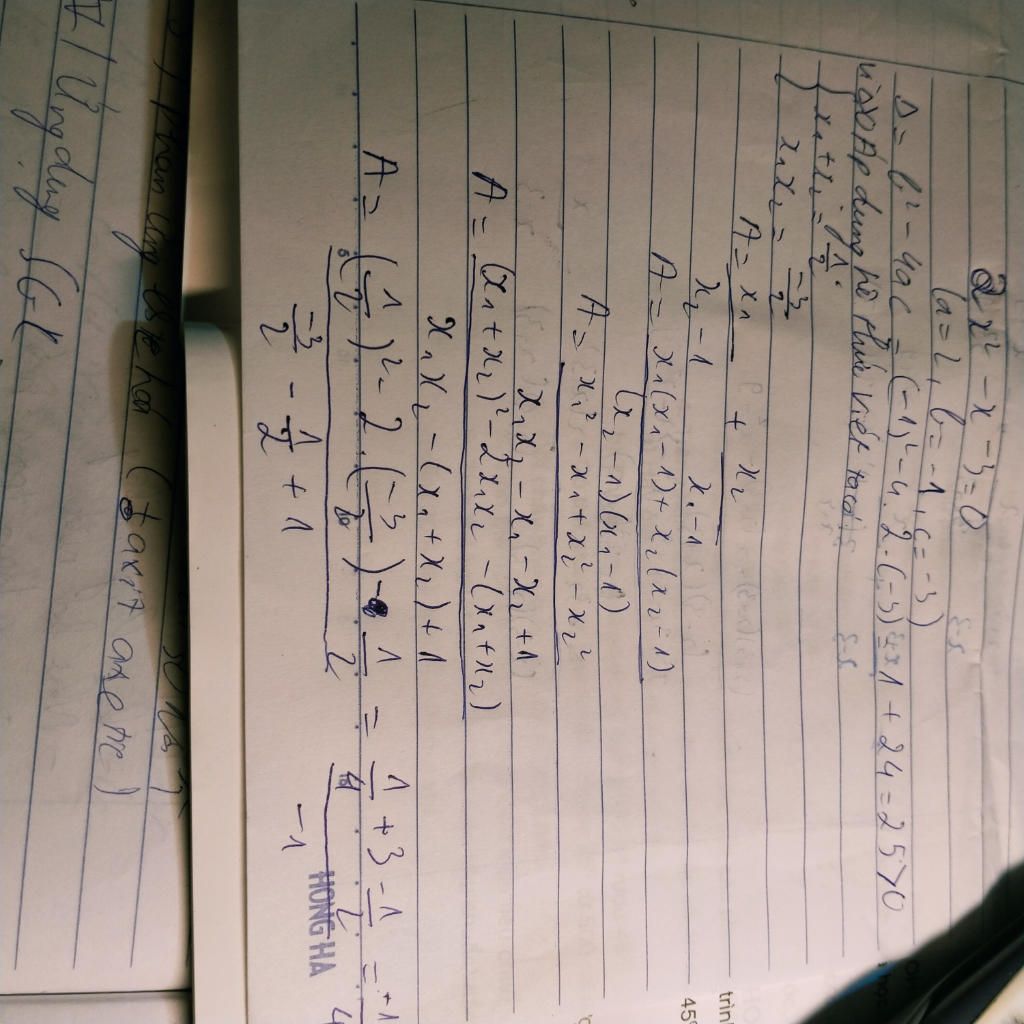 2x² - x - 3 = 0
(a = 2, b = -1, c = -3)
Δ = b² - 4ac = (-1)² - 4.2.(-3) = 1 + 24 = 25 > 0
Áp dụng hệ thức Viét ta có
{ x₁ + x₂ = 1/2
x₁x₂ = -3/2
A = x₁/(x₂ - 1) + x₂/(x₁ - 1)
A = (x₁(x₁ - 1) + x₂(x₂ - 1))/((x₂ - 1)(x₁ - 1))
A = (x₁² - x₁ + x₂² - x₂)/(x₁x₂ - x₁ - x₂ + 1)
A = ((x₁ + x₂)² - 2x₁x₂ - (x₁ + x₂))/(x₁x₂ - (x₁ + x₂) + 1)
A = ((1/2)² - 2.(-3/2) - 1/2)/(-3/2 - 1/2 + 1) = (1/4 + 3 - 1/2)/(-1) =
HONG HA
trình
45°
Ứng dụng